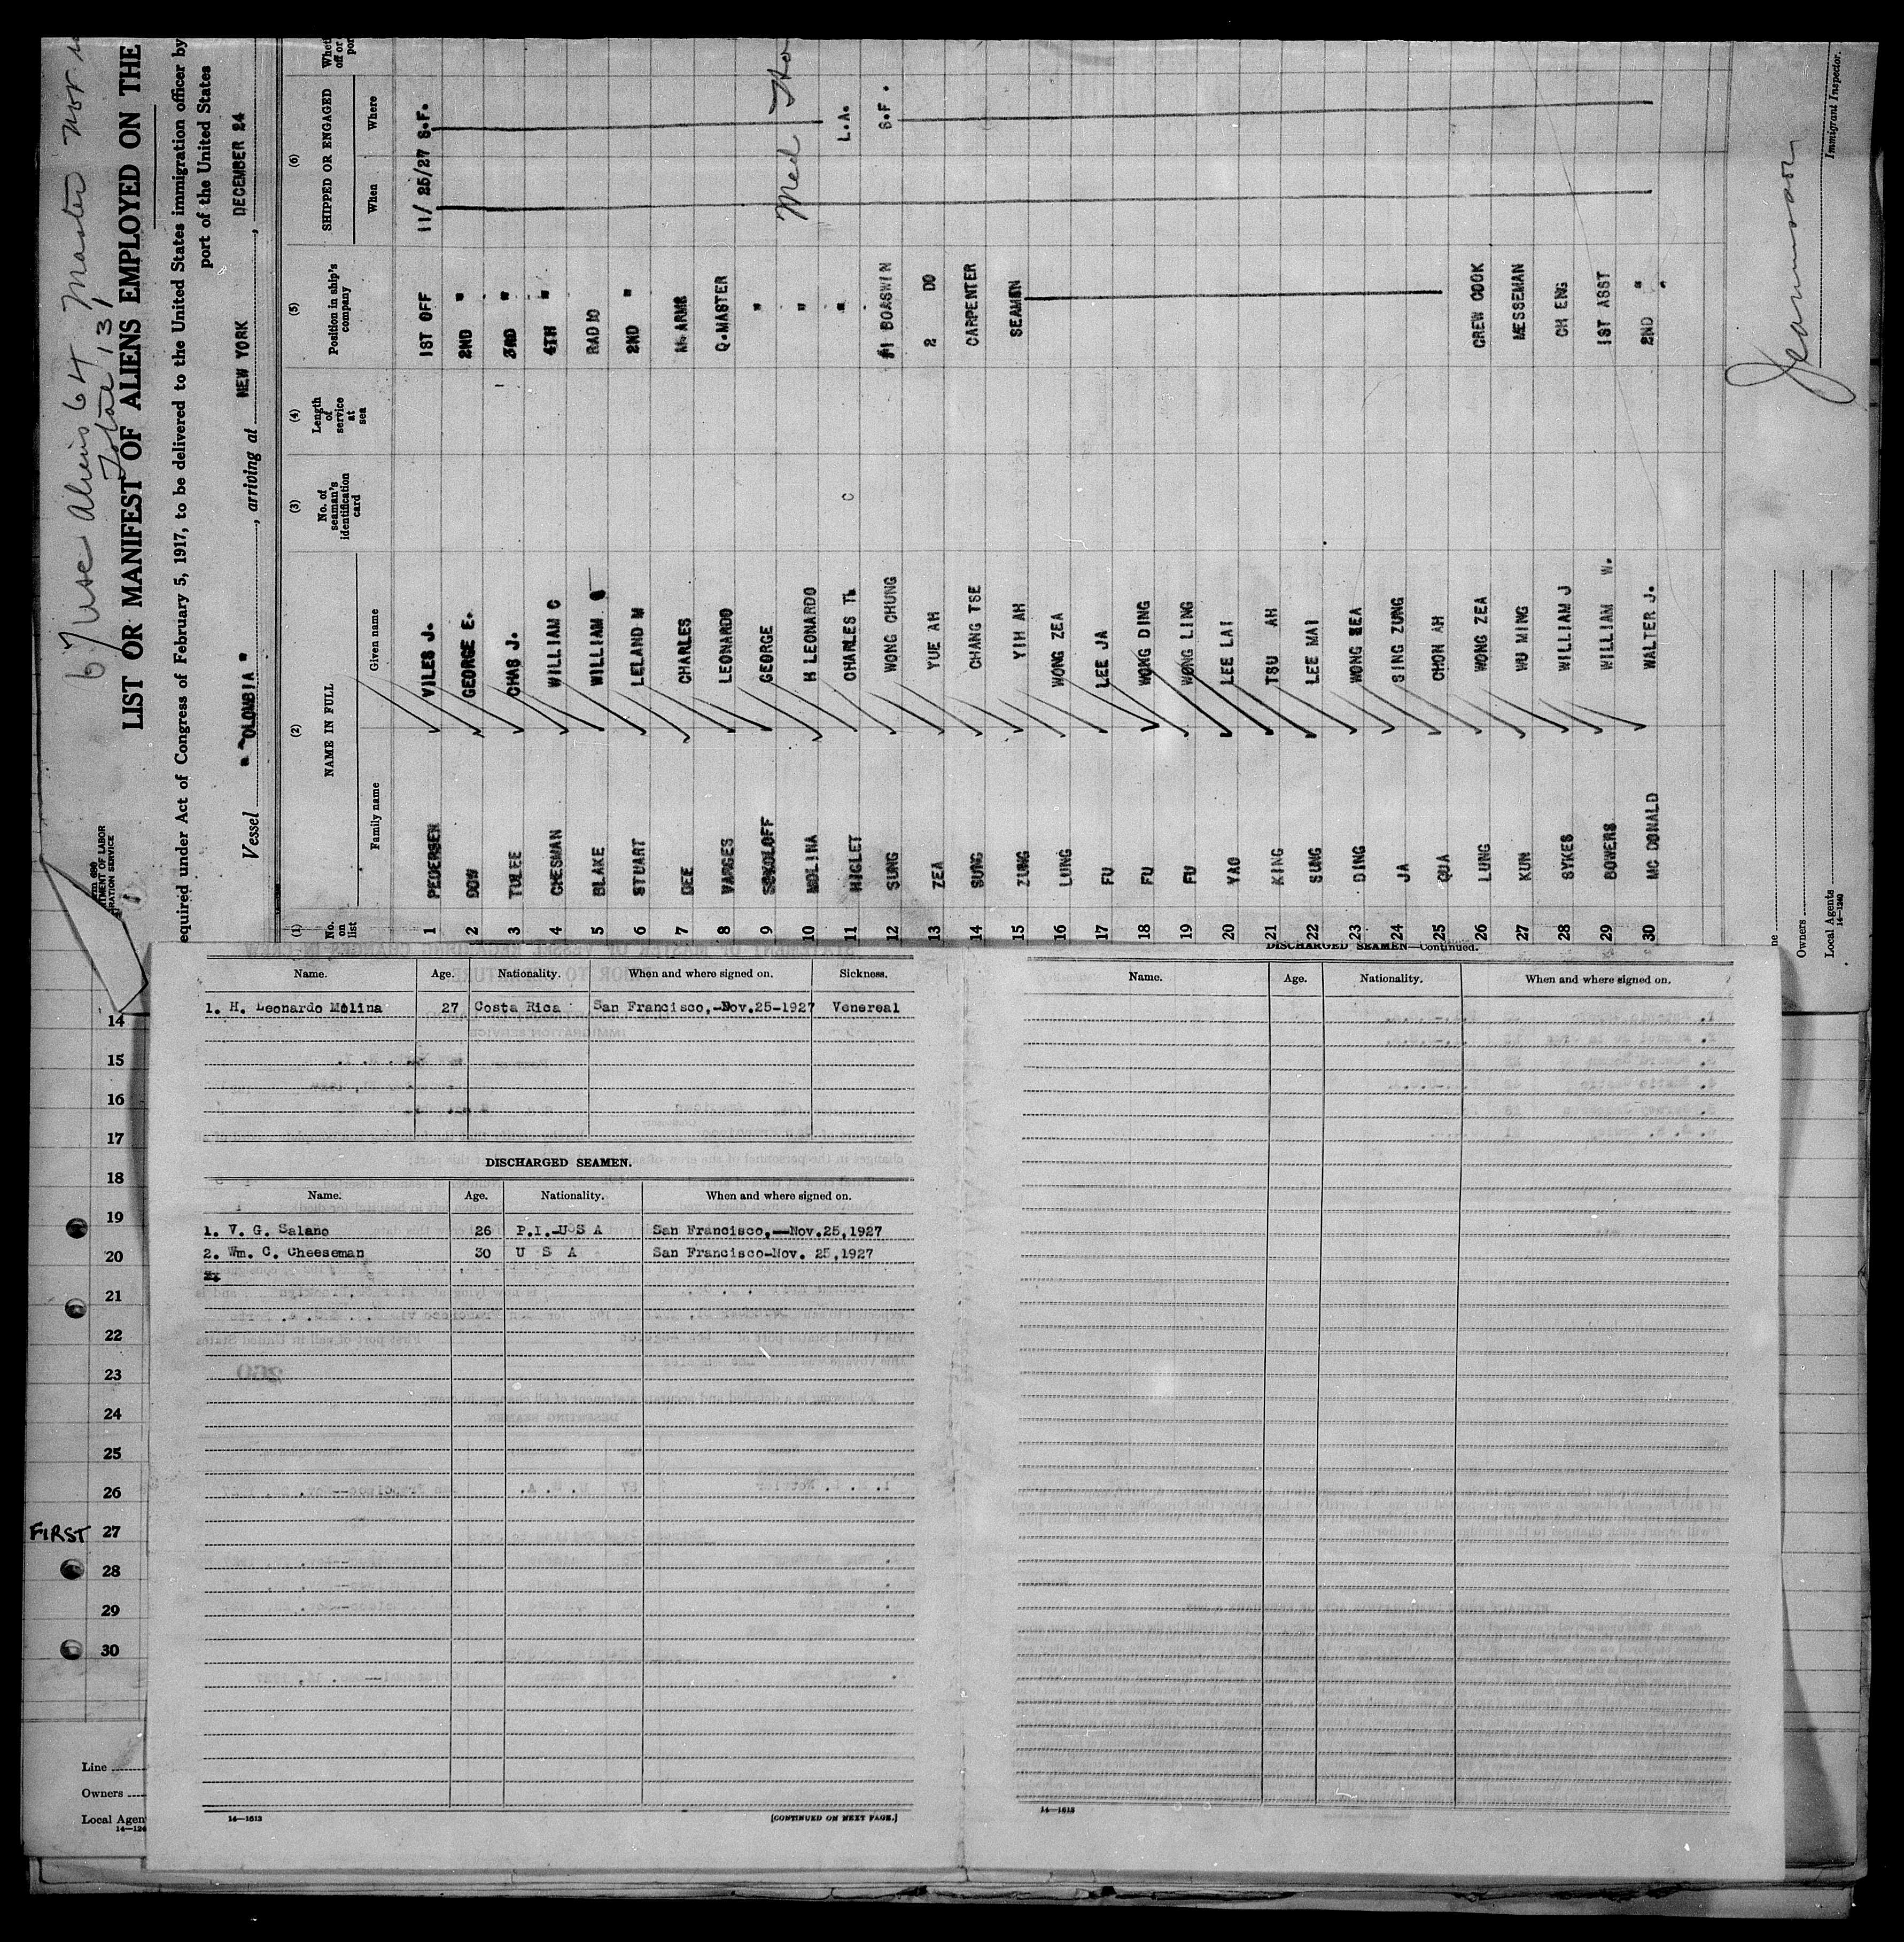 67 Use Aliens 64 Master
Total 131
LIST OR MANIFEST OF ALIENS EMPLOYED ON THE
equired under Act of Congress of February 5, 1917, to be delivered to the United States immigration officer by
port of the United States
Vessel "OLOMBIA", arriving at NEW YORK, DECEMBER 24
(1) (2) (3) (4) (5) (6)
No. on list NAME IN FULL No. of seaman's identification card Length of service at sea Position in ship's company SHIPPED OR ENGAGED
Family name Given name When Where
1 PEDERSEN VILES J. 1ST OFF 11/25/27 S.F.
2 DOW GEORGE E. 2ND "
3 TULEE CHAS J. 3RD "
4 CHESMAN WILLIAM C 4TH "
5 BLAKE WILLIAM RADIO
6 STUART LELAND M 2ND "
7 DEE CHARLES M. ARMS
8 VARGES LEONARDO Q.MASTER
9 SOKOLOFF GEORGE "
10 MOLINA H LEONARDO " Med
11 HIGLET CHARLES " L.A.
12 SUNG WONG CHUNG #1 BOASWIN S.F.
13 ZEA YUE AH 2 DO
14 SUNG CHANG TSE CARPENTER
15 ZUNG YIH AH SEAMEN
16 LUNG WONG ZEA
17 FU LEE JA
18 FU WONG DING
19 FU WONG LING
20 YAO LEE LAI
21 KING TSU AH
22 SUNG LEE MAI
23 DING WONG ZEA
24 JA SING ZUNG
25 QUA CHON AH
26 LUNG WONG ZEA CREW COOK
27 KUN WU MING MESSEMAN
28 SYKES WILLIAM J CH ENG
29 BOWERS WILLIAM W. 1ST ASST
30 MC DONALD WALTER J. 2ND "
Immigrant Inspector.
Owners
Local Agents
14—1240
Name. Age. Nationality. When and where signed on. Sickness.
1. H. Leonardo Molina 27 Costa Rica San Francisco,—Nov.25-1927 Venereal
DISCHARGED SEAMEN.
Name. Age. Nationality. When and where signed on.
1. V. G. Salano 26 P.I.-USA San Francisco,—Nov.25,1927
2. Wm. C. Cheeseman 30 U S A San Francisco-Nov. 25,1927
14—1613 [CONTINUED ON NEXT PAGE.]
DISCHARGED SEAMEN—Continued.
Name. Age. Nationality. When and where signed on.
14—1613
14
15
16
17
18
19
20
21
22
23
24
25
26
FIRST 27
28
29
30
Line
Owners
Local Agen
14—124